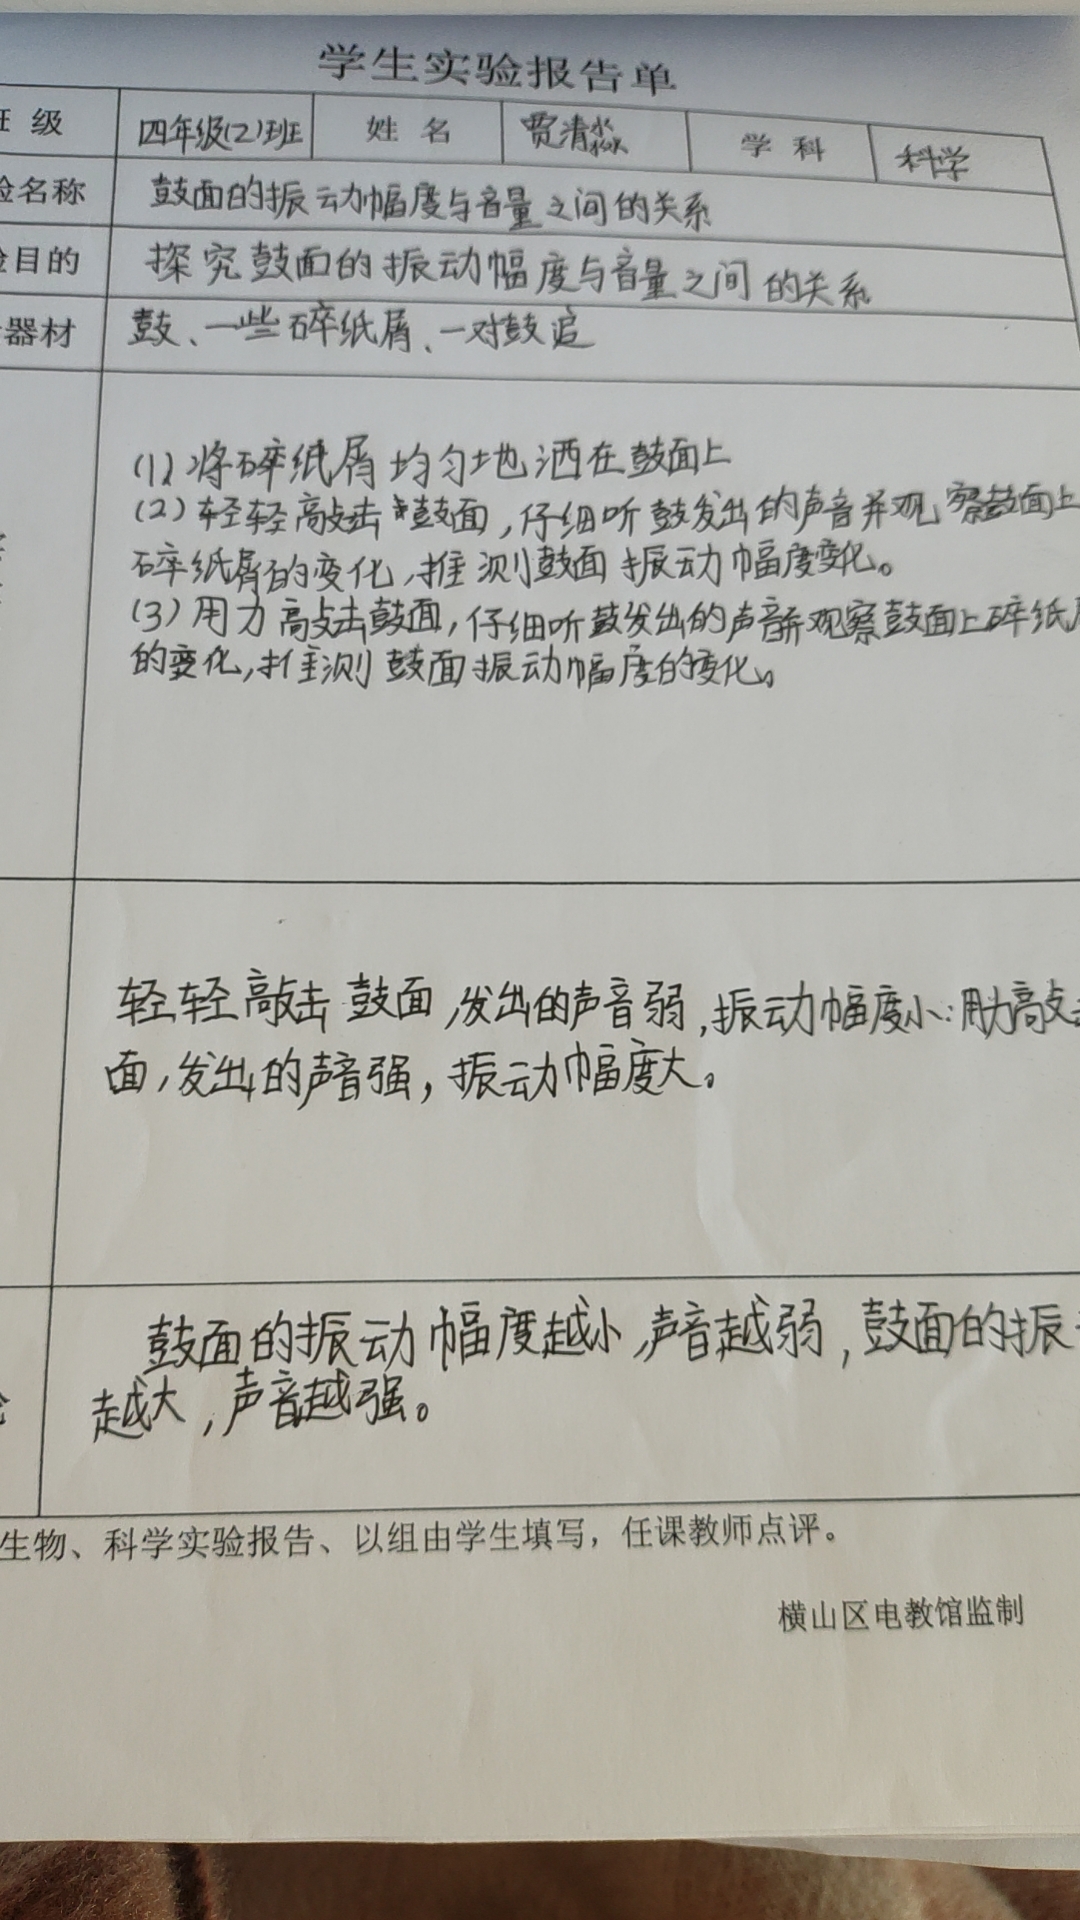 学生实验报告单
班 级 四年级(2)班 姓 名 贾清淼 学 科 科学
验名称 鼓面的振动幅度与音量之间的关系
验目的 探究鼓面的振动幅度与音量之间的关系
器材 鼓、一些碎纸屑、一对鼓追
(1)将碎纸屑均匀地洒在鼓面上
(2)轻轻敲击鼓面,仔细听鼓发出的声音并观察鼓面上
碎纸屑的变化,推测鼓面振动幅度变化。
(3)用力敲击鼓面,仔细听鼓发出的声音并观察鼓面上碎纸屑
的变化,推测鼓面振动幅度的变化。
轻轻敲击鼓面,发出的声音弱,振动幅度小;用力敲击
面,发出的声音强,振动幅度大。
鼓面的振动幅度越小,声音越弱,鼓面的振
越大,声音越强。
生物、科学实验报告、以组由学生填写，任课教师点评。
横山区电教馆监制